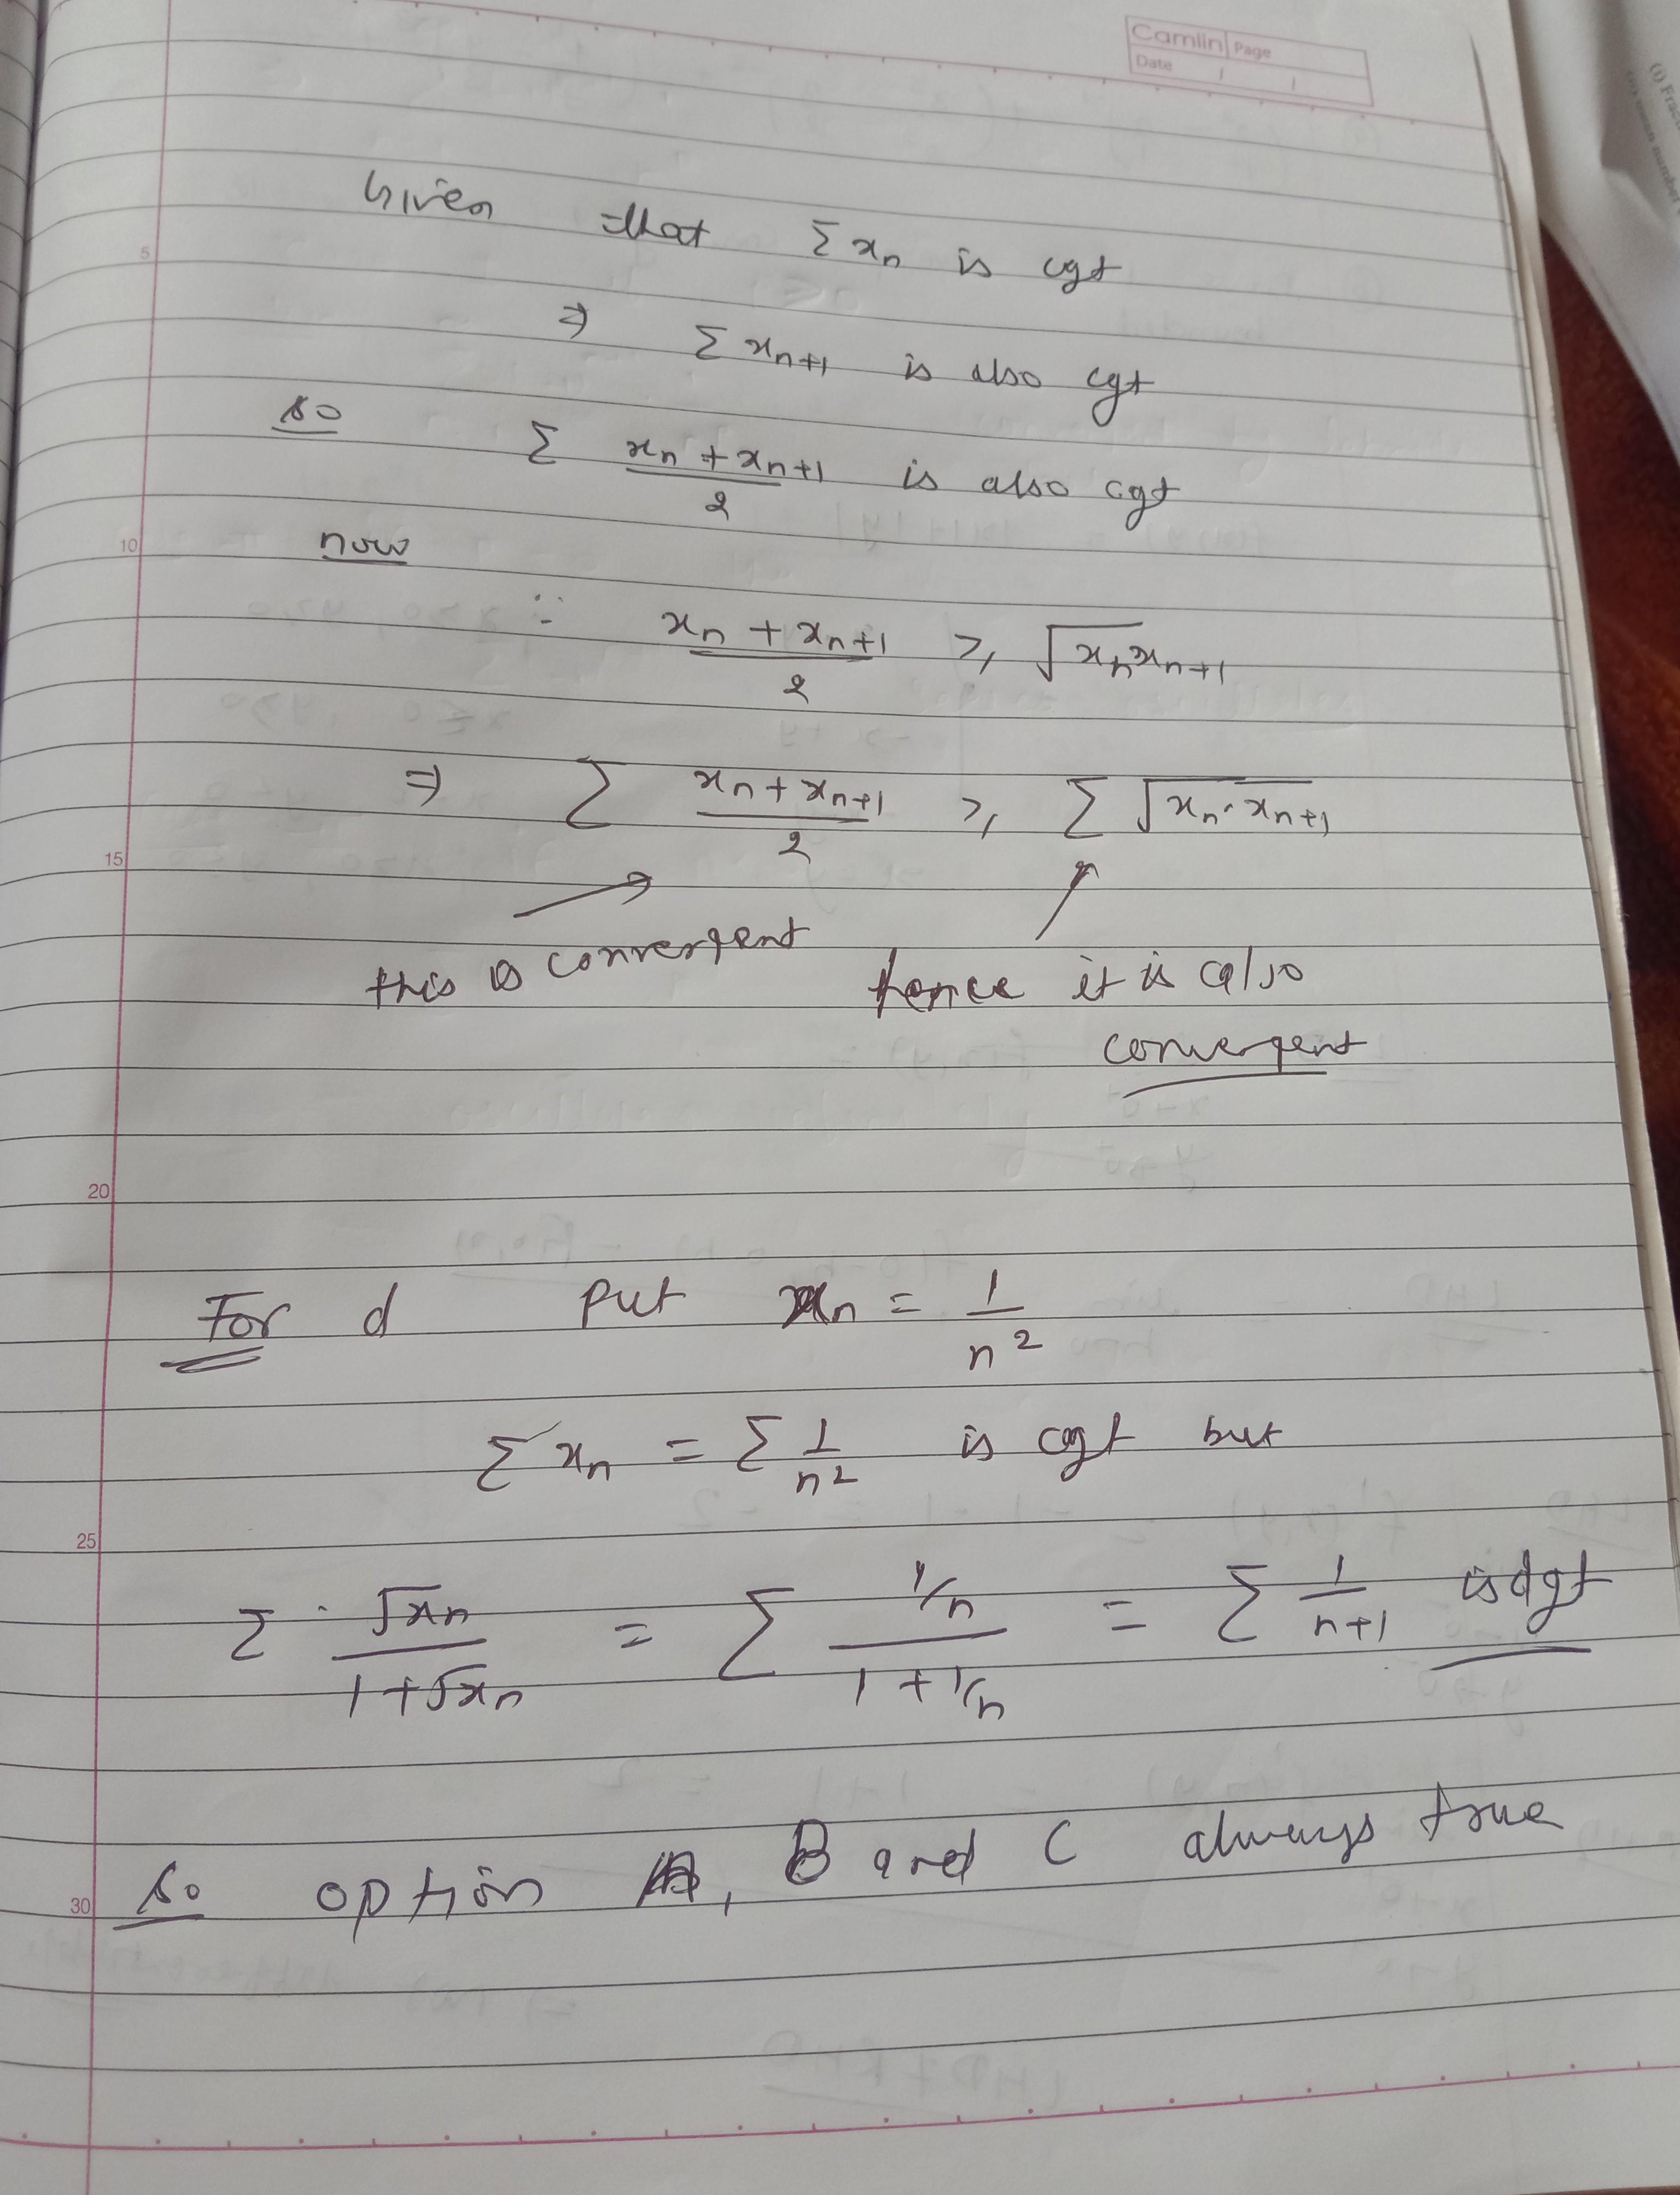 Camlin Page
Date / /
Given that Σ xn is cgt
⇒ Σ xn+1 is also cgt
so Σ (xn + xn+1)/2 is also cgt
now
∵ (xn + xn+1)/2 ≥ √(xn xn+1)
⇒ Σ (xn + xn+1)/2 ≥ Σ √(xn · xn+1)
this is convergent hence it is also
convergent
For d put xn = 1/n²
Σ xn = Σ 1/n² is cgt but
Σ √xn/(1+√xn) = Σ (1/n)/(1+1/n) = Σ 1/(n+1) is dgt
so option A, B and C always true
5
10
15
20
25
30